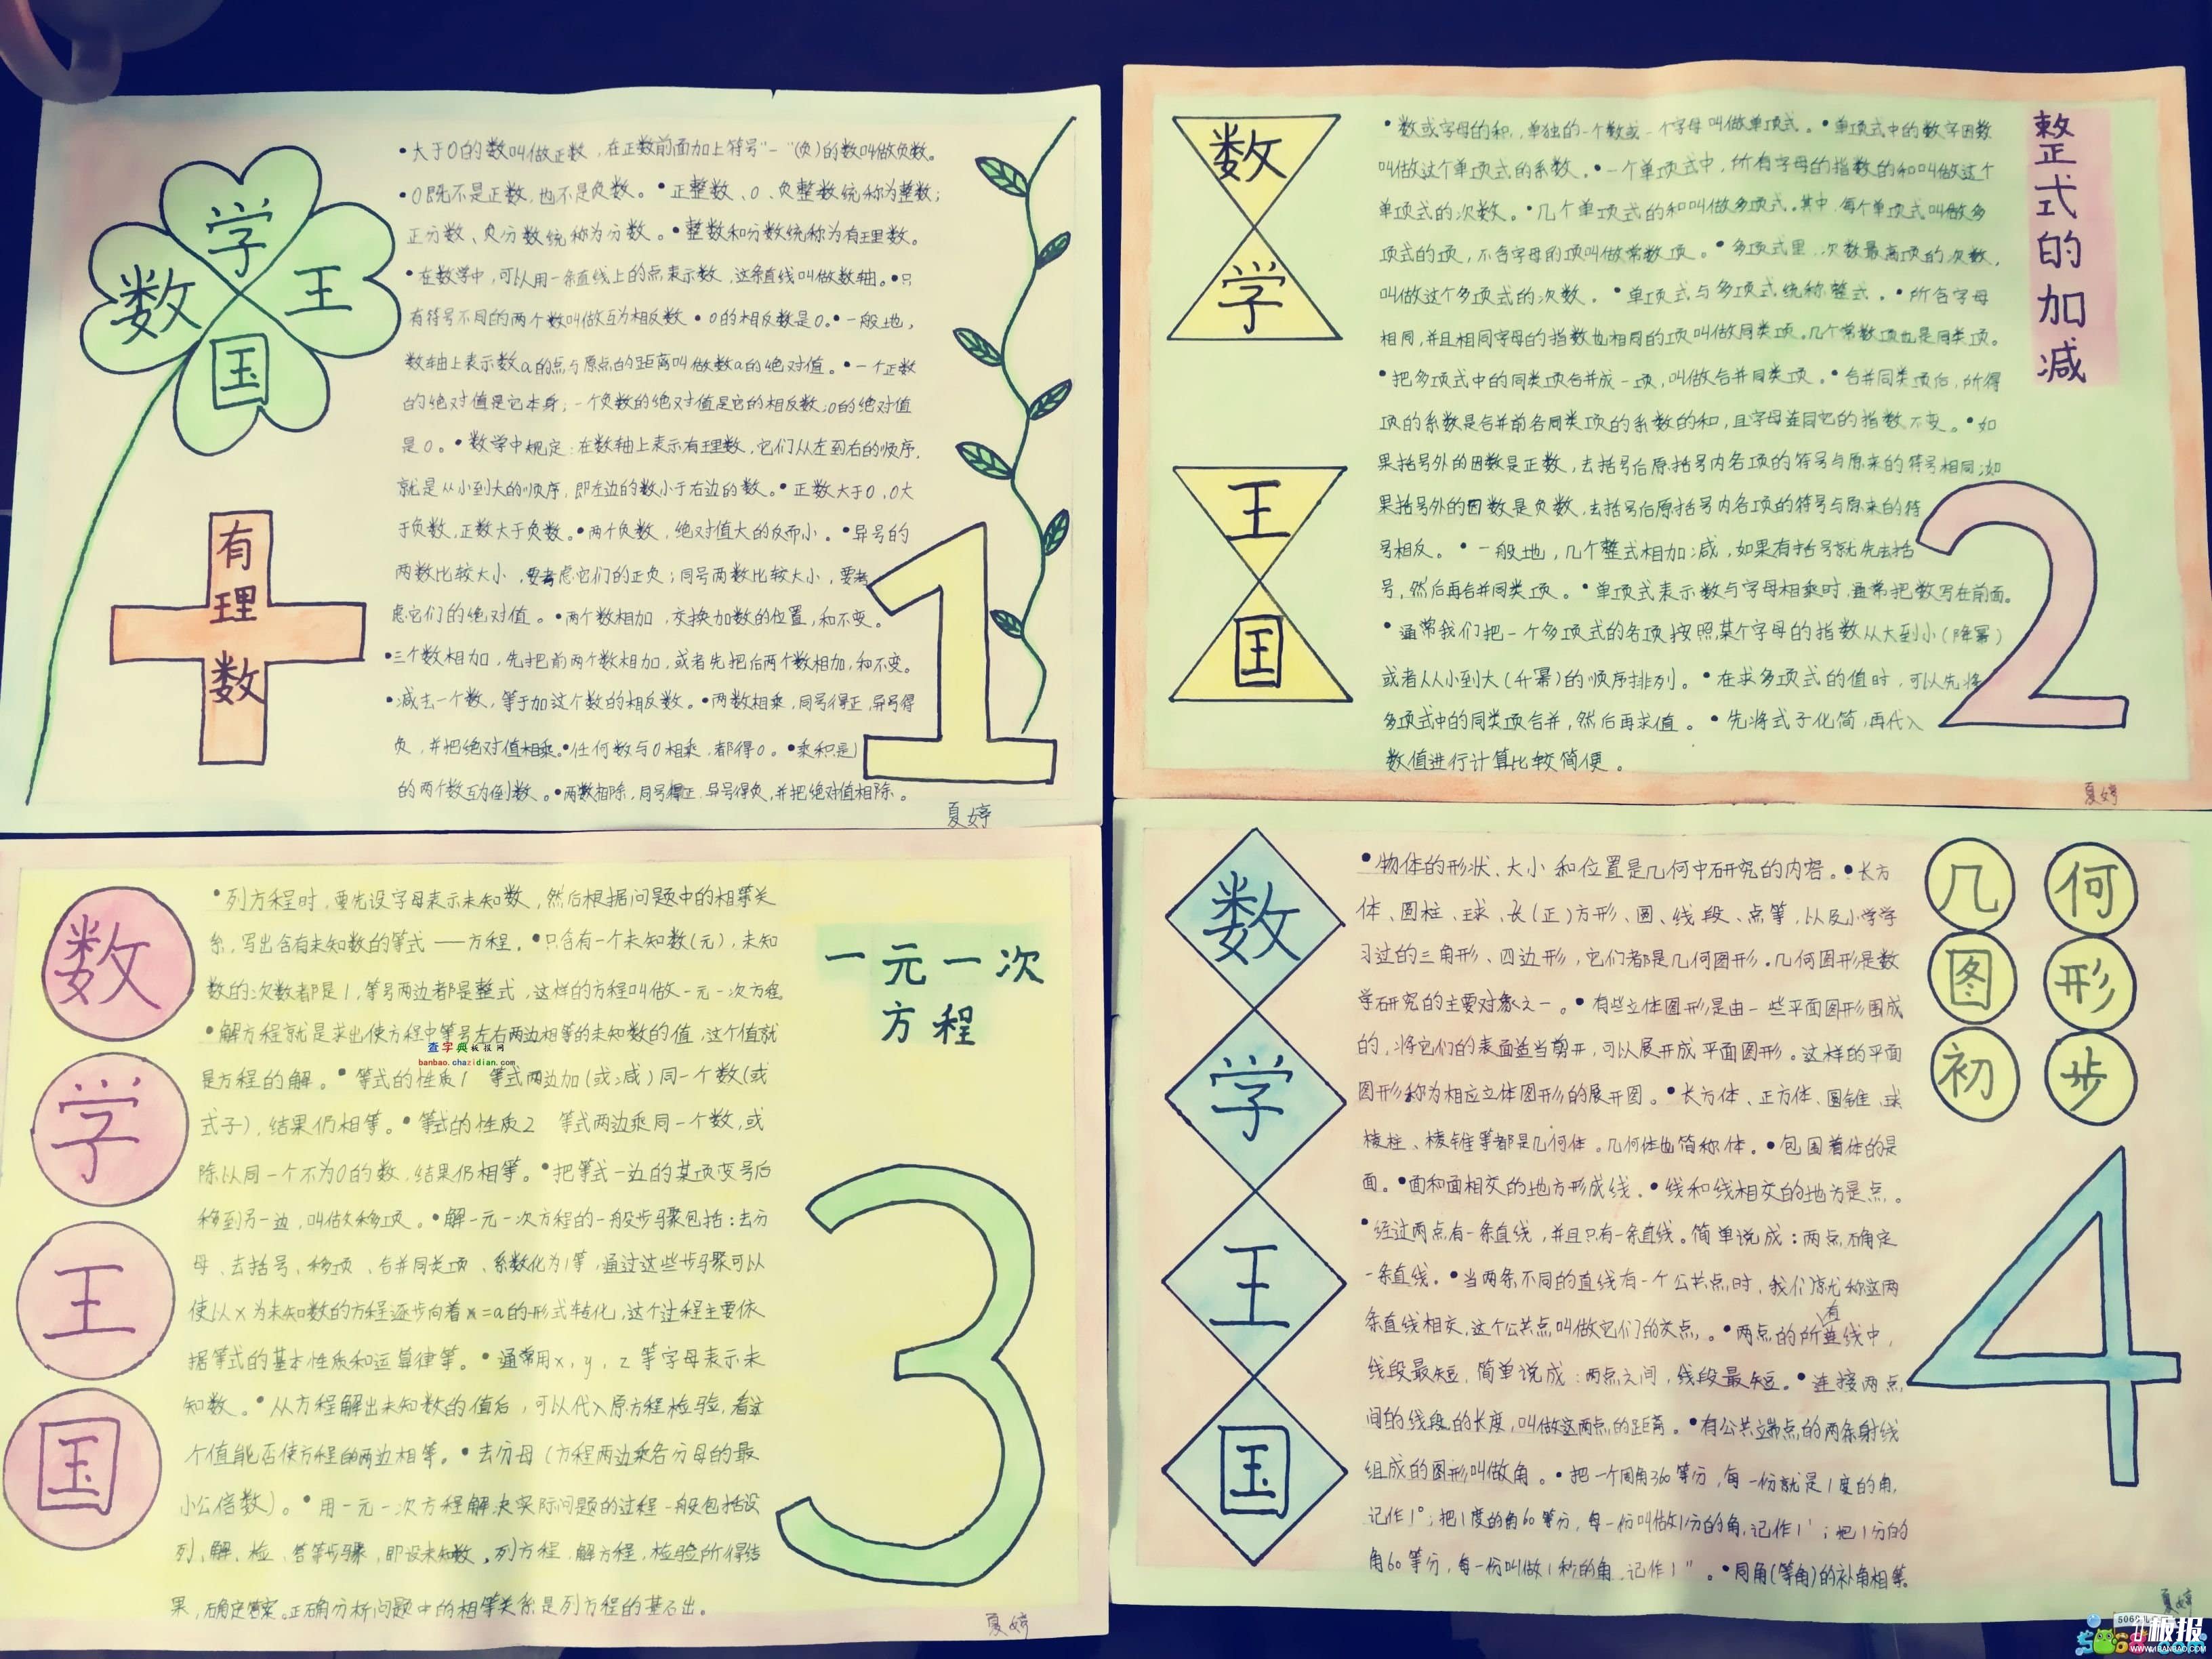 数学王国
有理数
•大于0的数叫做正数，在正数前面加上符号“－”(负)的数叫做负数。
•0既不是正数，也不是负数。•正整数、0、负整数统称为整数；
正分数、负分数统称为分数。•整数和分数统称为有理数。
•在数学中，可以用一条直线上的点表示数，这条直线叫做数轴。•只
有符号不同的两个数叫做互为相反数•0的相反数是0。•一般地，
数轴上表示数a的点与原点的距离叫做数a的绝对值。•一个正数
的绝对值是它本身；一个负数的绝对值是它的相反数；0的绝对值
是0。•数学中规定：在数轴上表示有理数，它们从左到右的顺序，
就是从小到大的顺序，即左边的数小于右边的数。•正数大于0，0大
于负数，正数大于负数。•两个负数，绝对值大的反而小。•异号的
两数比较大小，要考虑它们的正负；同号两数比较大小，要考
虑它们的绝对值。•两个数相加，交换加数的位置，和不变。
•三个数相加，先把前两个数相加，或者先把后两个数相加，和不变。
•减去一个数，等于加这个数的相反数。•两数相乘，同号得正，异号得
负，并把绝对值相乘。•任何数与0相乘，都得0。•乘积是1
的两个数互为倒数。•两数相除，同号得正，异号得负，并把绝对值相除。
1
夏婷
数学王国
整式的加减
•数或字母的积，单独的一个数或一个字母叫做单项式。•单项式中的数字因数
叫做这个单项式的系数。•一个单项式中，所有字母的指数的和叫做这个
单项式的次数。•几个单项式的和叫做多项式。其中，每个单项式叫做多
项式的项，不含字母的项叫做常数项。•多项式里，次数最高项的次数，
叫做这个多项式的次数。•单项式与多项式统称整式。•所含字母
相同，并且相同字母的指数也相同的项叫做同类项。几个常数项也是同类项。
•把多项式中的同类项合并成一项，叫做合并同类项。•合并同类项后，所得
项的系数是合并前各同类项的系数的和，且字母连同它的指数不变。•如
果括号外的因数是正数，去括号后原括号内各项的符号与原来的符号相同；如
果括号外的因数是负数，去括号后原括号内各项的符号与原来的符
号相反。•一般地，几个整式相加减，如果有括号就先去括
号，然后再合并同类项。•单项式表示数与字母相乘时，通常把数写在前面。
•通常我们把一个多项式的各项按照某个字母的指数从大到小(降幂)
或者从从小到大(升幂)的顺序排列。•在求多项式的值时，可以先将
多项式中的同类项合并，然后再求值。•先将式子化简，再代入
数值进行计算比较简便。
2
夏婷
数学王国
一元一次
方程
•列方程时，要先设字母表示未知数，然后根据问题中的相等关
系，写出含有未知数的等式——方程。•只含有一个未知数(元)，未知
数的次数都是1，等号两边都是整式，这样的方程叫做一元一次方程。
•解方程就是求出使方程中等号左右两边相等的未知数的值，这个值就
查字典板报网
banbao.chazidian.com
是方程的解。•等式的性质1 等式两边加(或减)同一个数(或
式子)，结果仍相等。•等式的性质2 等式两边乘同一个数，或
除以同一个不为0的数，结果仍相等。•把等式一边的某项变号后
移到另一边，叫做移项。•解一元一次方程的一般步骤包括：去分
母、去括号、移项、合并同类项、系数化为1等，通过这些步骤可以
使以x为未知数的方程逐步向着x=a的形式转化，这个过程主要依
据等式的基本性质和运算律等。•通常用x，y，z等字母表示未
知数。•从方程解出未知数的值后，可以代入原方程检验，看这
个值能否使方程的两边相等。•去分母(方程两边乘各分母的最
小公倍数)。•用一元一次方程解决实际问题的过程一般包括设
列、解、检、答等步骤，即设未知数，列方程，解方程，检验所得结
果，确定答案。正确分析问题中的相等关系是列方程的基石出。
3
夏婷
数学王国
几何图形初步
•物体的形状、大小和位置是几何中研究的内容。•长方
体、圆柱、球、长(正)方形、圆、线段、点等，以及小学学
习过的三角形、四边形，它们都是几何图形。几何图形是数
学研究的主要对象之一。•有些立体图形是由一些平面图形围成
的，将它们的表面适当剪开，可以展开成平面图形。这样的平面
图形称为相应立体图形的展开图。•长方体、正方体、圆锥、球
棱柱、棱锥等都是几何体。几何体也简称体。•包围着体的是
面。•面和面相交的地方形成线。•线和线相交的地方是点。
•经过两点有一条直线，并且只有一条直线。简单说成：两点确定
一条直线。•当两条不同的直线有一个公共点时，我们就称这两
条直线相交，这个公共点叫做它们的交点。•两点的所有连线中，
线段最短，简单说成：两点之间，线段最短。•连接两点
间的线段的长度，叫做这两点的距离。•有公共端点的两条射线
组成的图形叫做角。•把一个周角360等分，每一份就是1度的角，
记作1°；把1度的角60等分，每一份叫做1分的角，记作1′；把1分的
角60等分，每一份叫做1秒的角，记作1″。•同角(等角)的补角相等。
4
夏婷
板报
WWW.1BANBAO.COM